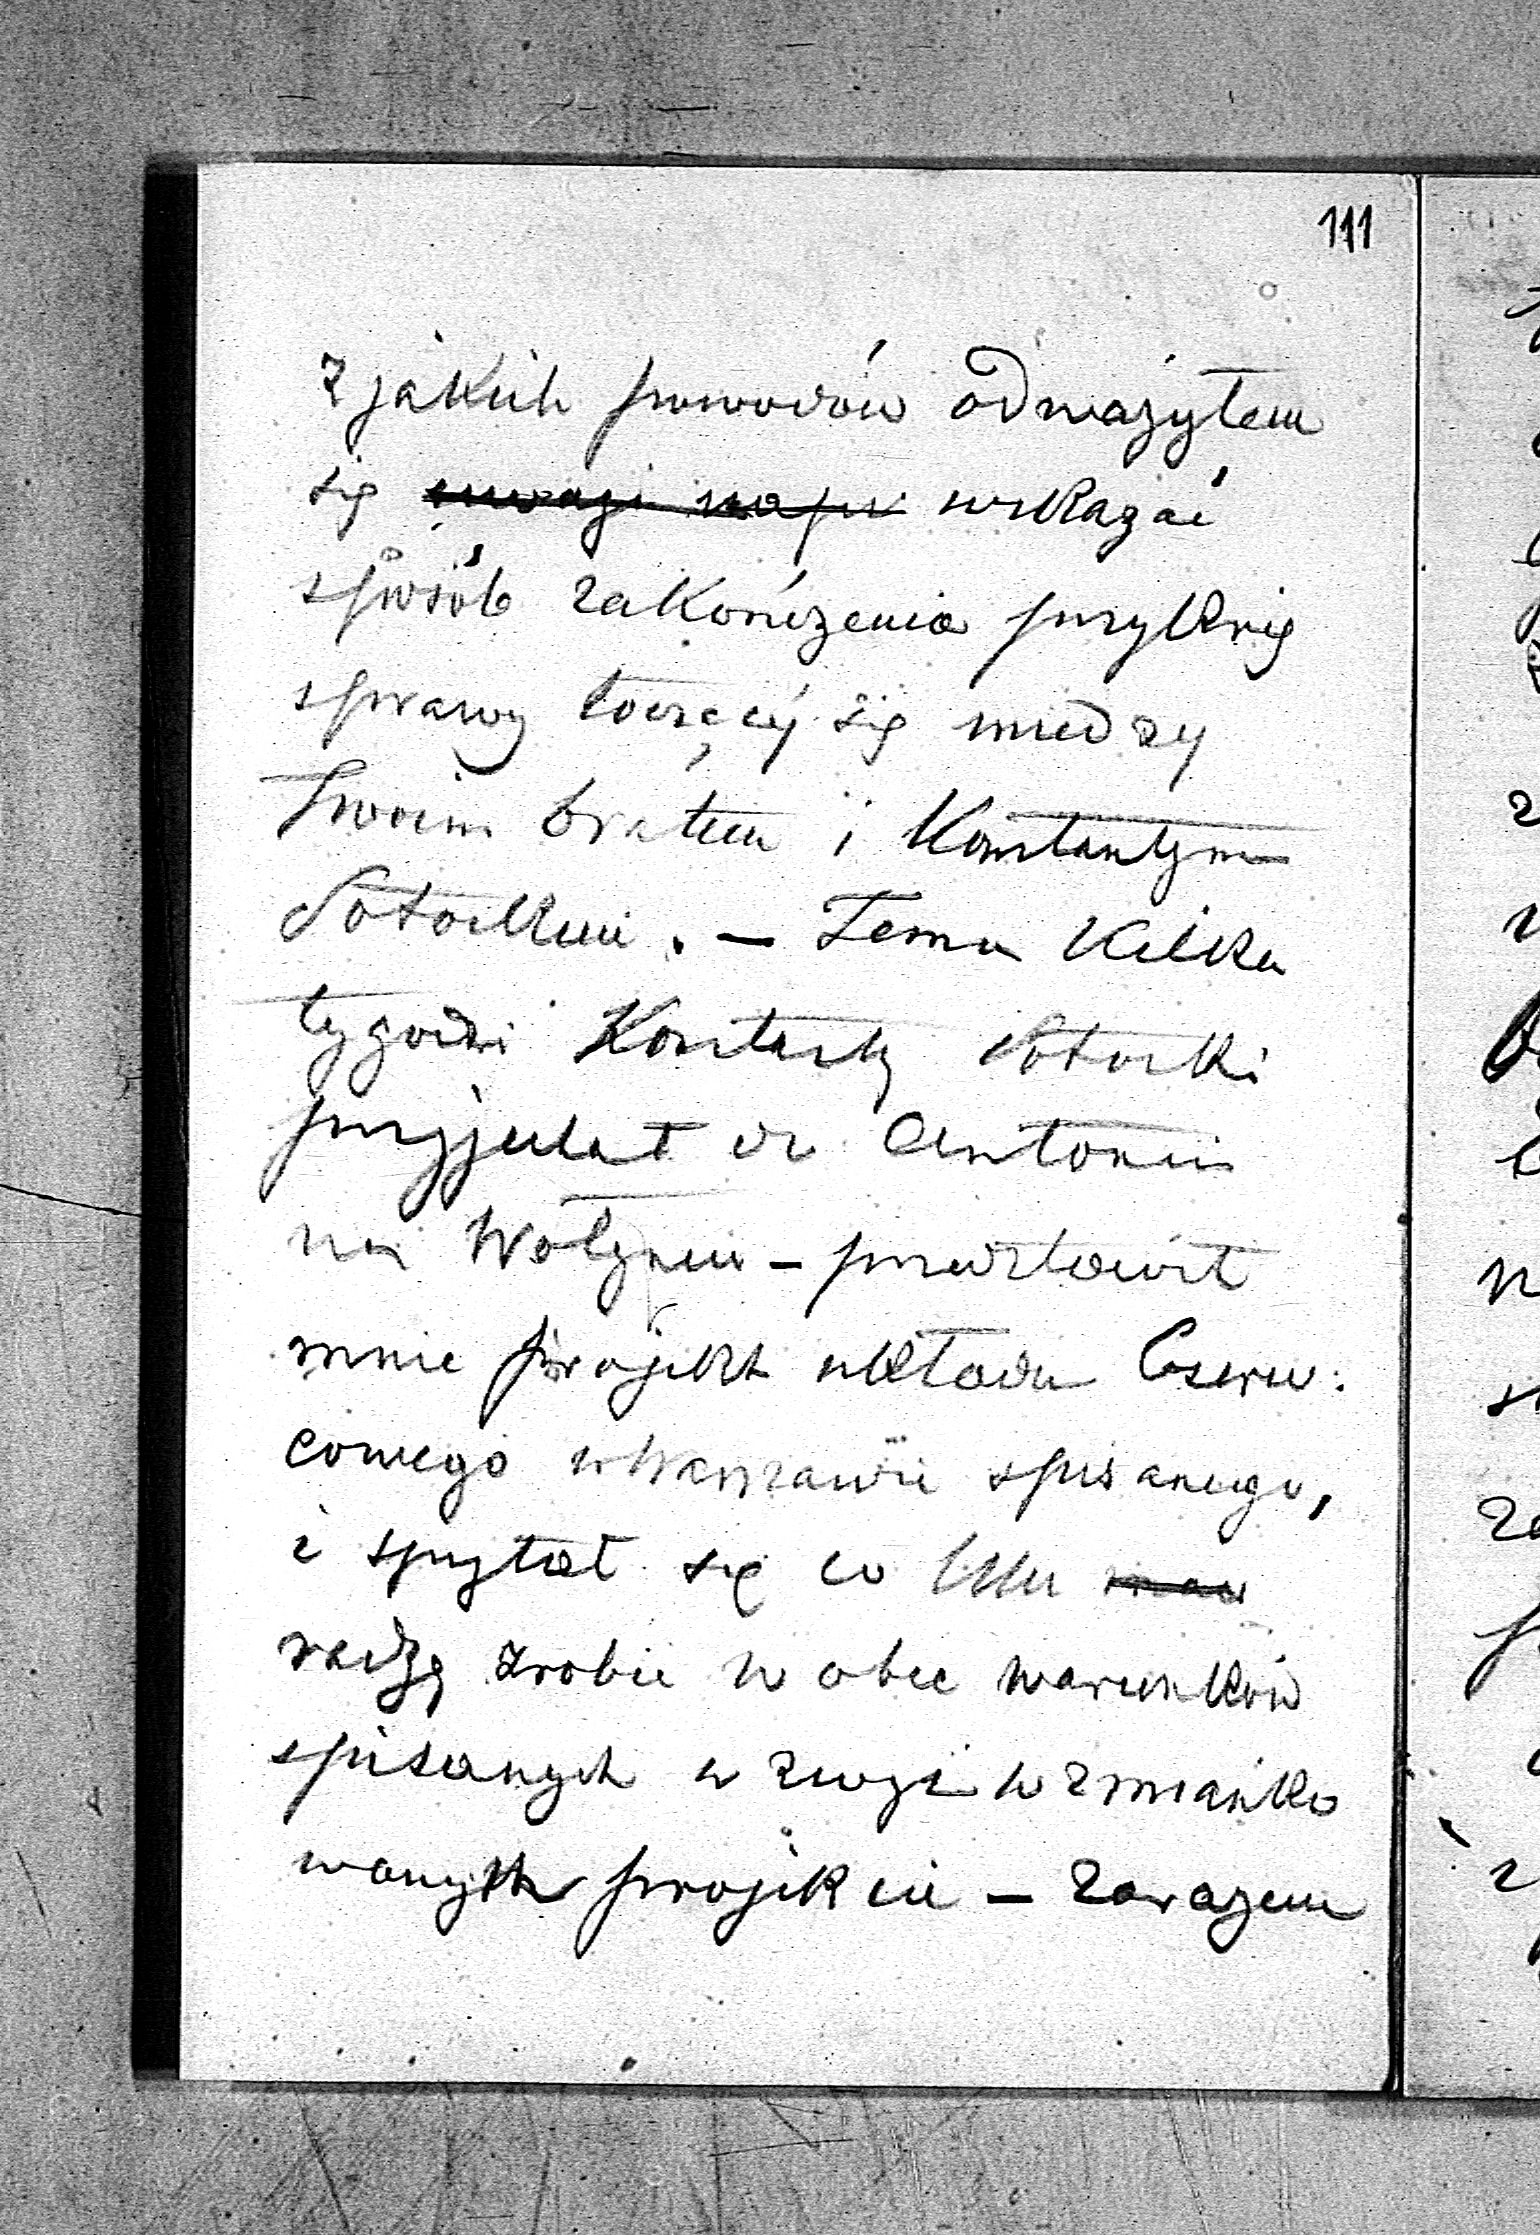 111
z jakich powodów odważyłem
się wskazać
sposób zakończenia przykrej
sprawy toczącej się miedzy
Twoim bratem i Konstantym
Potockim. — Temu kilka
tygodni Konstanty Potocki
przyjechał do Antonin
na Wołyniu – przedstawił
mnie projekt układu Czerw:
cowego w Warszawie spisanego,
i spytał się co Mu
radzę zrobić w obec warunków
spisanych w zwyż wzmianko
wanych projekcie – Zarazem